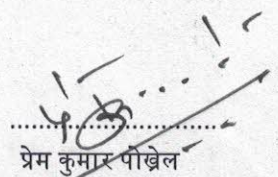 प्रेम कुमार पोखेल